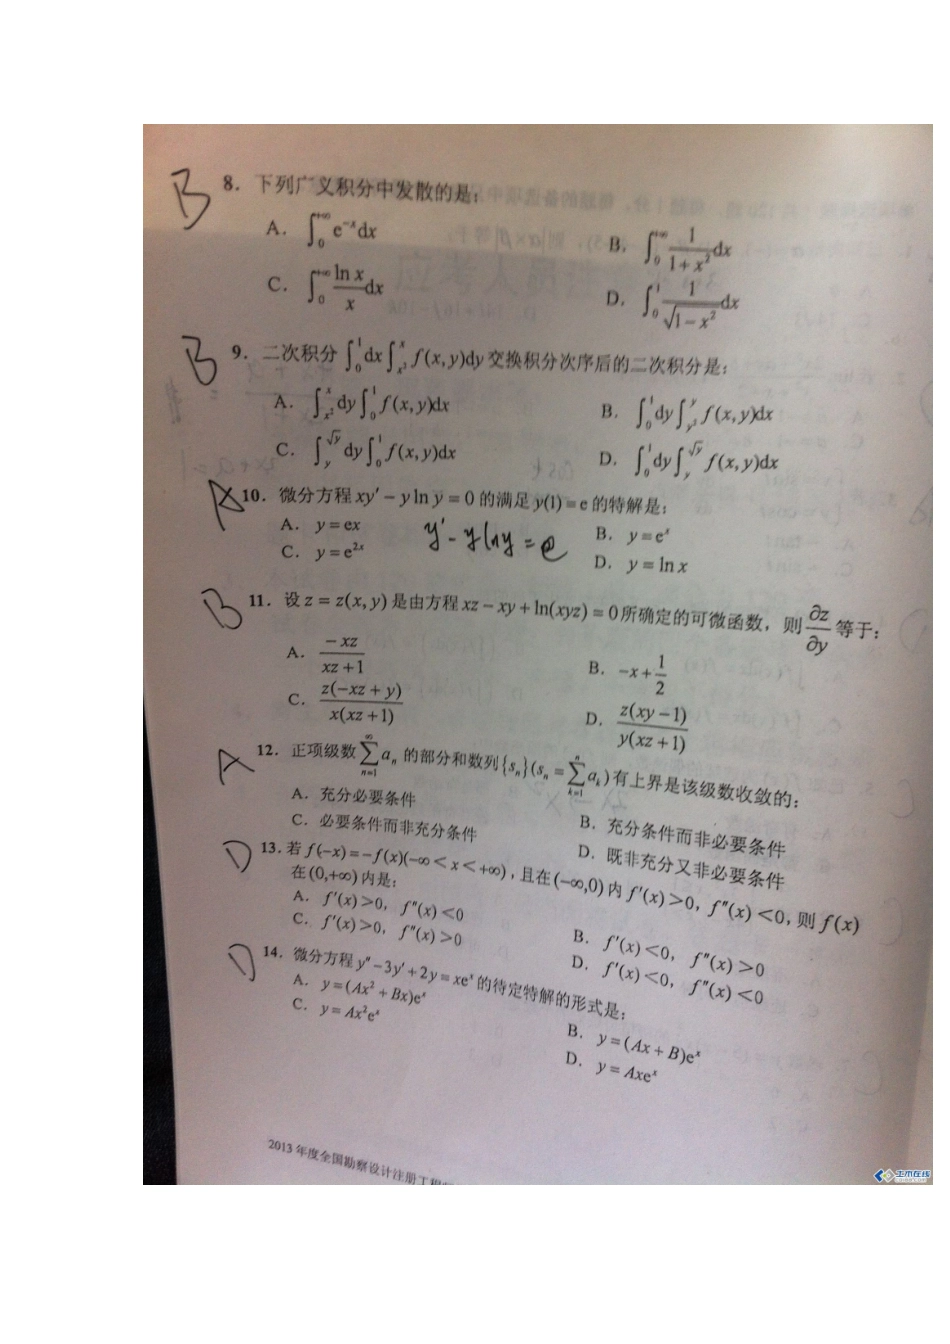 B 8. 下列广义积分中发散的是:
A. ∫₀^{+∞} e^{-x}dx B. ∫₀^{+∞} \frac{1}{1+x²}dx
C. ∫₀^{+∞} \frac{ln x}{x}dx D. ∫₀^{1} \frac{1}{\sqrt{1-x²}}dx
B 9. 二次积分 ∫₀^{1}dx∫_{x²}^{x} f(x,y)dy 交换积分次序后的二次积分是:
A. ∫_{x²}^{x}dy∫₀^{1} f(x,y)dx B. ∫₀^{1}dy∫_{y²}^{y} f(x,y)dx
C. ∫_{y}^{\sqrt{y}}dy∫₀^{1} f(x,y)dx D. ∫₀^{1}dy∫_{y}^{\sqrt{y}} f(x,y)dx
A 10. 微分方程 xy′-y ln y=0 的满足 y(1)=e 的特解是:
A. y=ex B. y=e^{x}
y′-ylny=e
C. y=e^{2x} D. y=ln x
B 11. 设 z=z(x,y) 是由方程 xz-xy+ln(xyz)=0 所确定的可微函数, 则 \frac{∂z}{∂y} 等于:
A. \frac{-xz}{xz+1} B. -x+\frac{1}{2}
C. \frac{z(-xz+y)}{x(xz+1)} D. \frac{z(xy-1)}{y(xz+1)}
A 12. 正项级数 \sum_{n=1}^{∞} a_n 的部分和数列{s_n}(s_n=\sum_{k=1}^{n} a_k)有上界是该级数收敛的:
A. 充分必要条件 B. 充分条件而非必要条件
C. 必要条件而非充分条件 D. 既非充分又非必要条件
D 13. 若 f(-x)=-f(x)(-∞<x<+∞), 且在(-∞,0)内 f′(x)>0, f″(x)<0, 则 f(x)
在(0,+∞)内是:
A. f′(x)>0, f″(x)<0 B. f′(x)<0, f″(x)>0
C. f′(x)>0, f″(x)>0 D. f′(x)<0, f″(x)<0
D 14. 微分方程 y″-3y′+2y=xe^{x} 的待定特解的形式是:
A. y=(Ax²+Bx)e^{x} B. y=(Ax+B)e^{x}
C. y=Ax²e^{x} D. y=Axe^{x}
2013 年度全国勘察设计注册工程师
土木在线